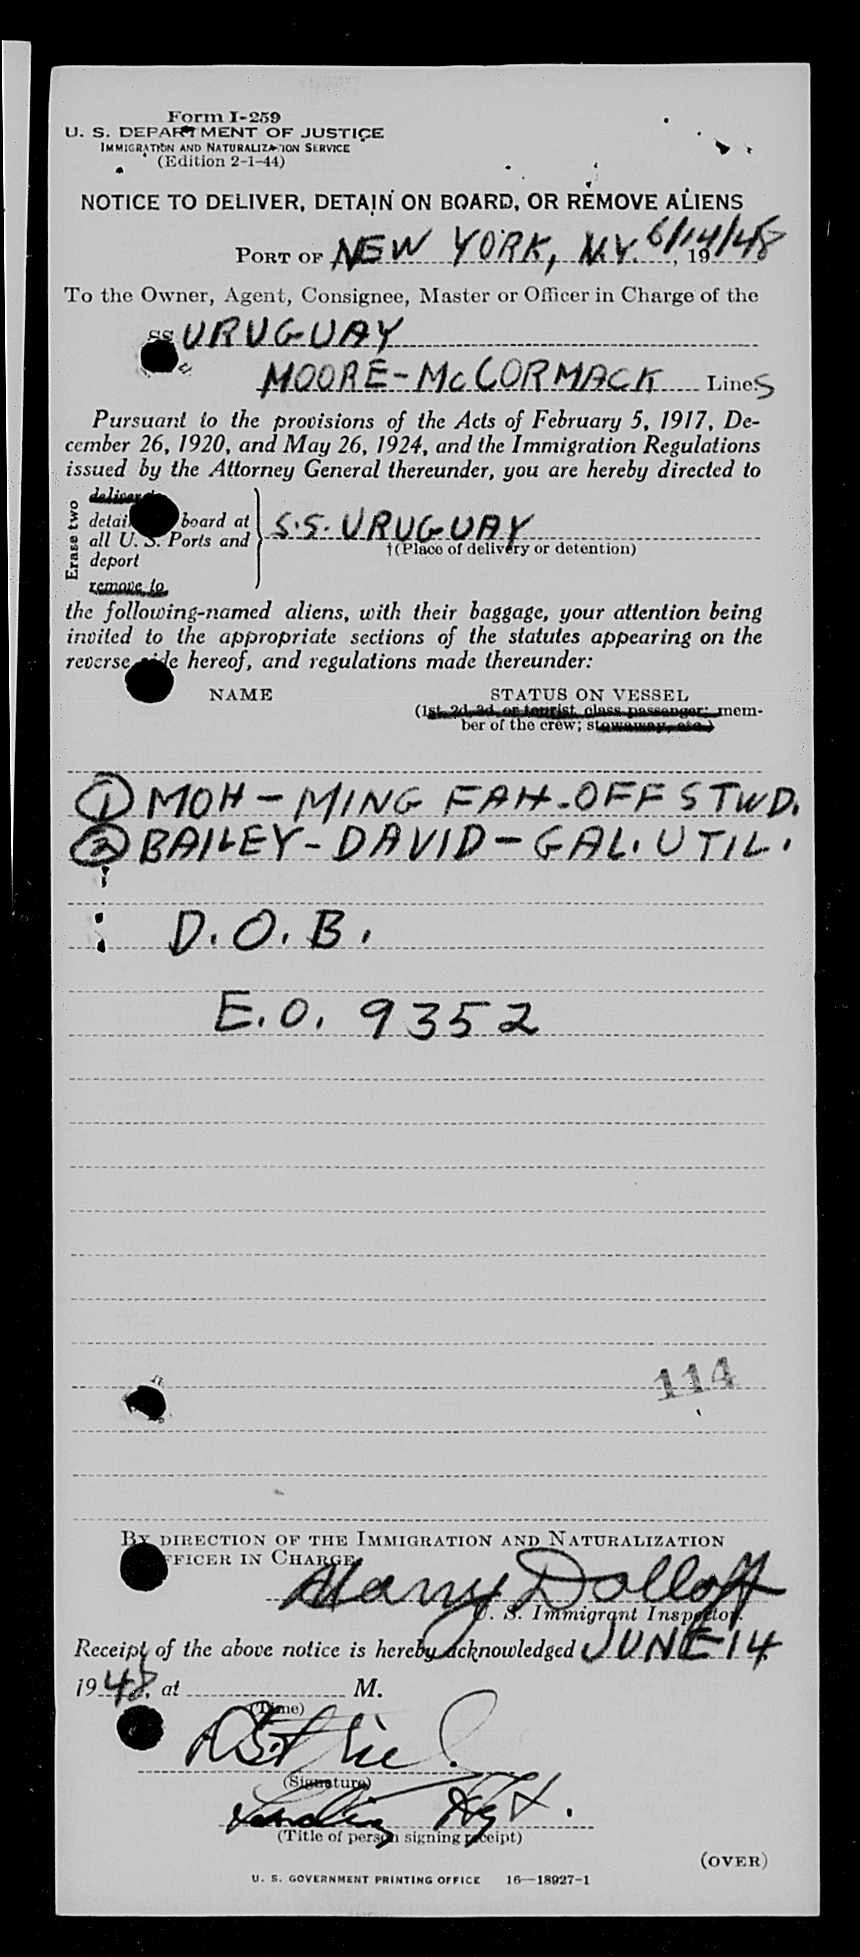 Form I-259
U. S. DEPARTMENT OF JUSTICE
IMMIGRATION AND NATURALIZATION SERVICE
(Edition 2-1-44)
NOTICE TO DELIVER, DETAIN ON BOARD, OR REMOVE ALIENS
PORT OF NEW YORK, N.Y. 6/14/48, 19
To the Owner, Agent, Consignee, Master or Officer in Charge of the
SS URUGUAY
MOORE-McCORMACK Lines
Pursuant to the provisions of the Acts of February 5, 1917, De-
cember 26, 1920, and May 26, 1924, and the Immigration Regulations
issued by the Attorney General thereunder, you are hereby directed to
Erase two
deliver to
detain board at
all U. S. Ports and
deport
remove to
S.S. URUGUAY
†(Place of delivery or detention)
the following-named aliens, with their baggage, your attention being
invited to the appropriate sections of the statutes appearing on the
reverse side hereof, and regulations made thereunder:
NAME STATUS ON VESSEL
(1st, 2d, 3d, or tourist class passenger; mem-
ber of the crew; stowaway, etc.)
① MOH - MING FAH - OFF STWD.
② BAILEY - DAVID - GAL. UTIL.
D.O.B.
E.O. 9352
114
BY DIRECTION OF THE IMMIGRATION AND NATURALIZATION
OFFICER IN CHARGE
Harry Dolloff
U. S. Immigrant Inspector.
Receipt of the above notice is hereby acknowledged JUNE 14
1948, at M.
(Time)
(Signature)
(Title of person signing receipt)
(OVER)
U. S. GOVERNMENT PRINTING OFFICE 16—18927-1